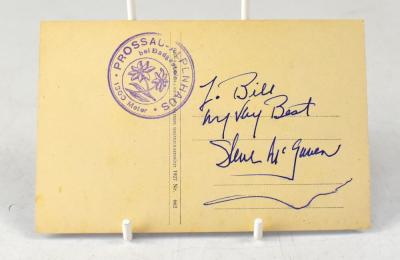 PROSSAU-ALPENHAUS
bei Badgastein
1300 Meter
1927 Nr. 662
To Bill
My Very Best
Steve McQueen